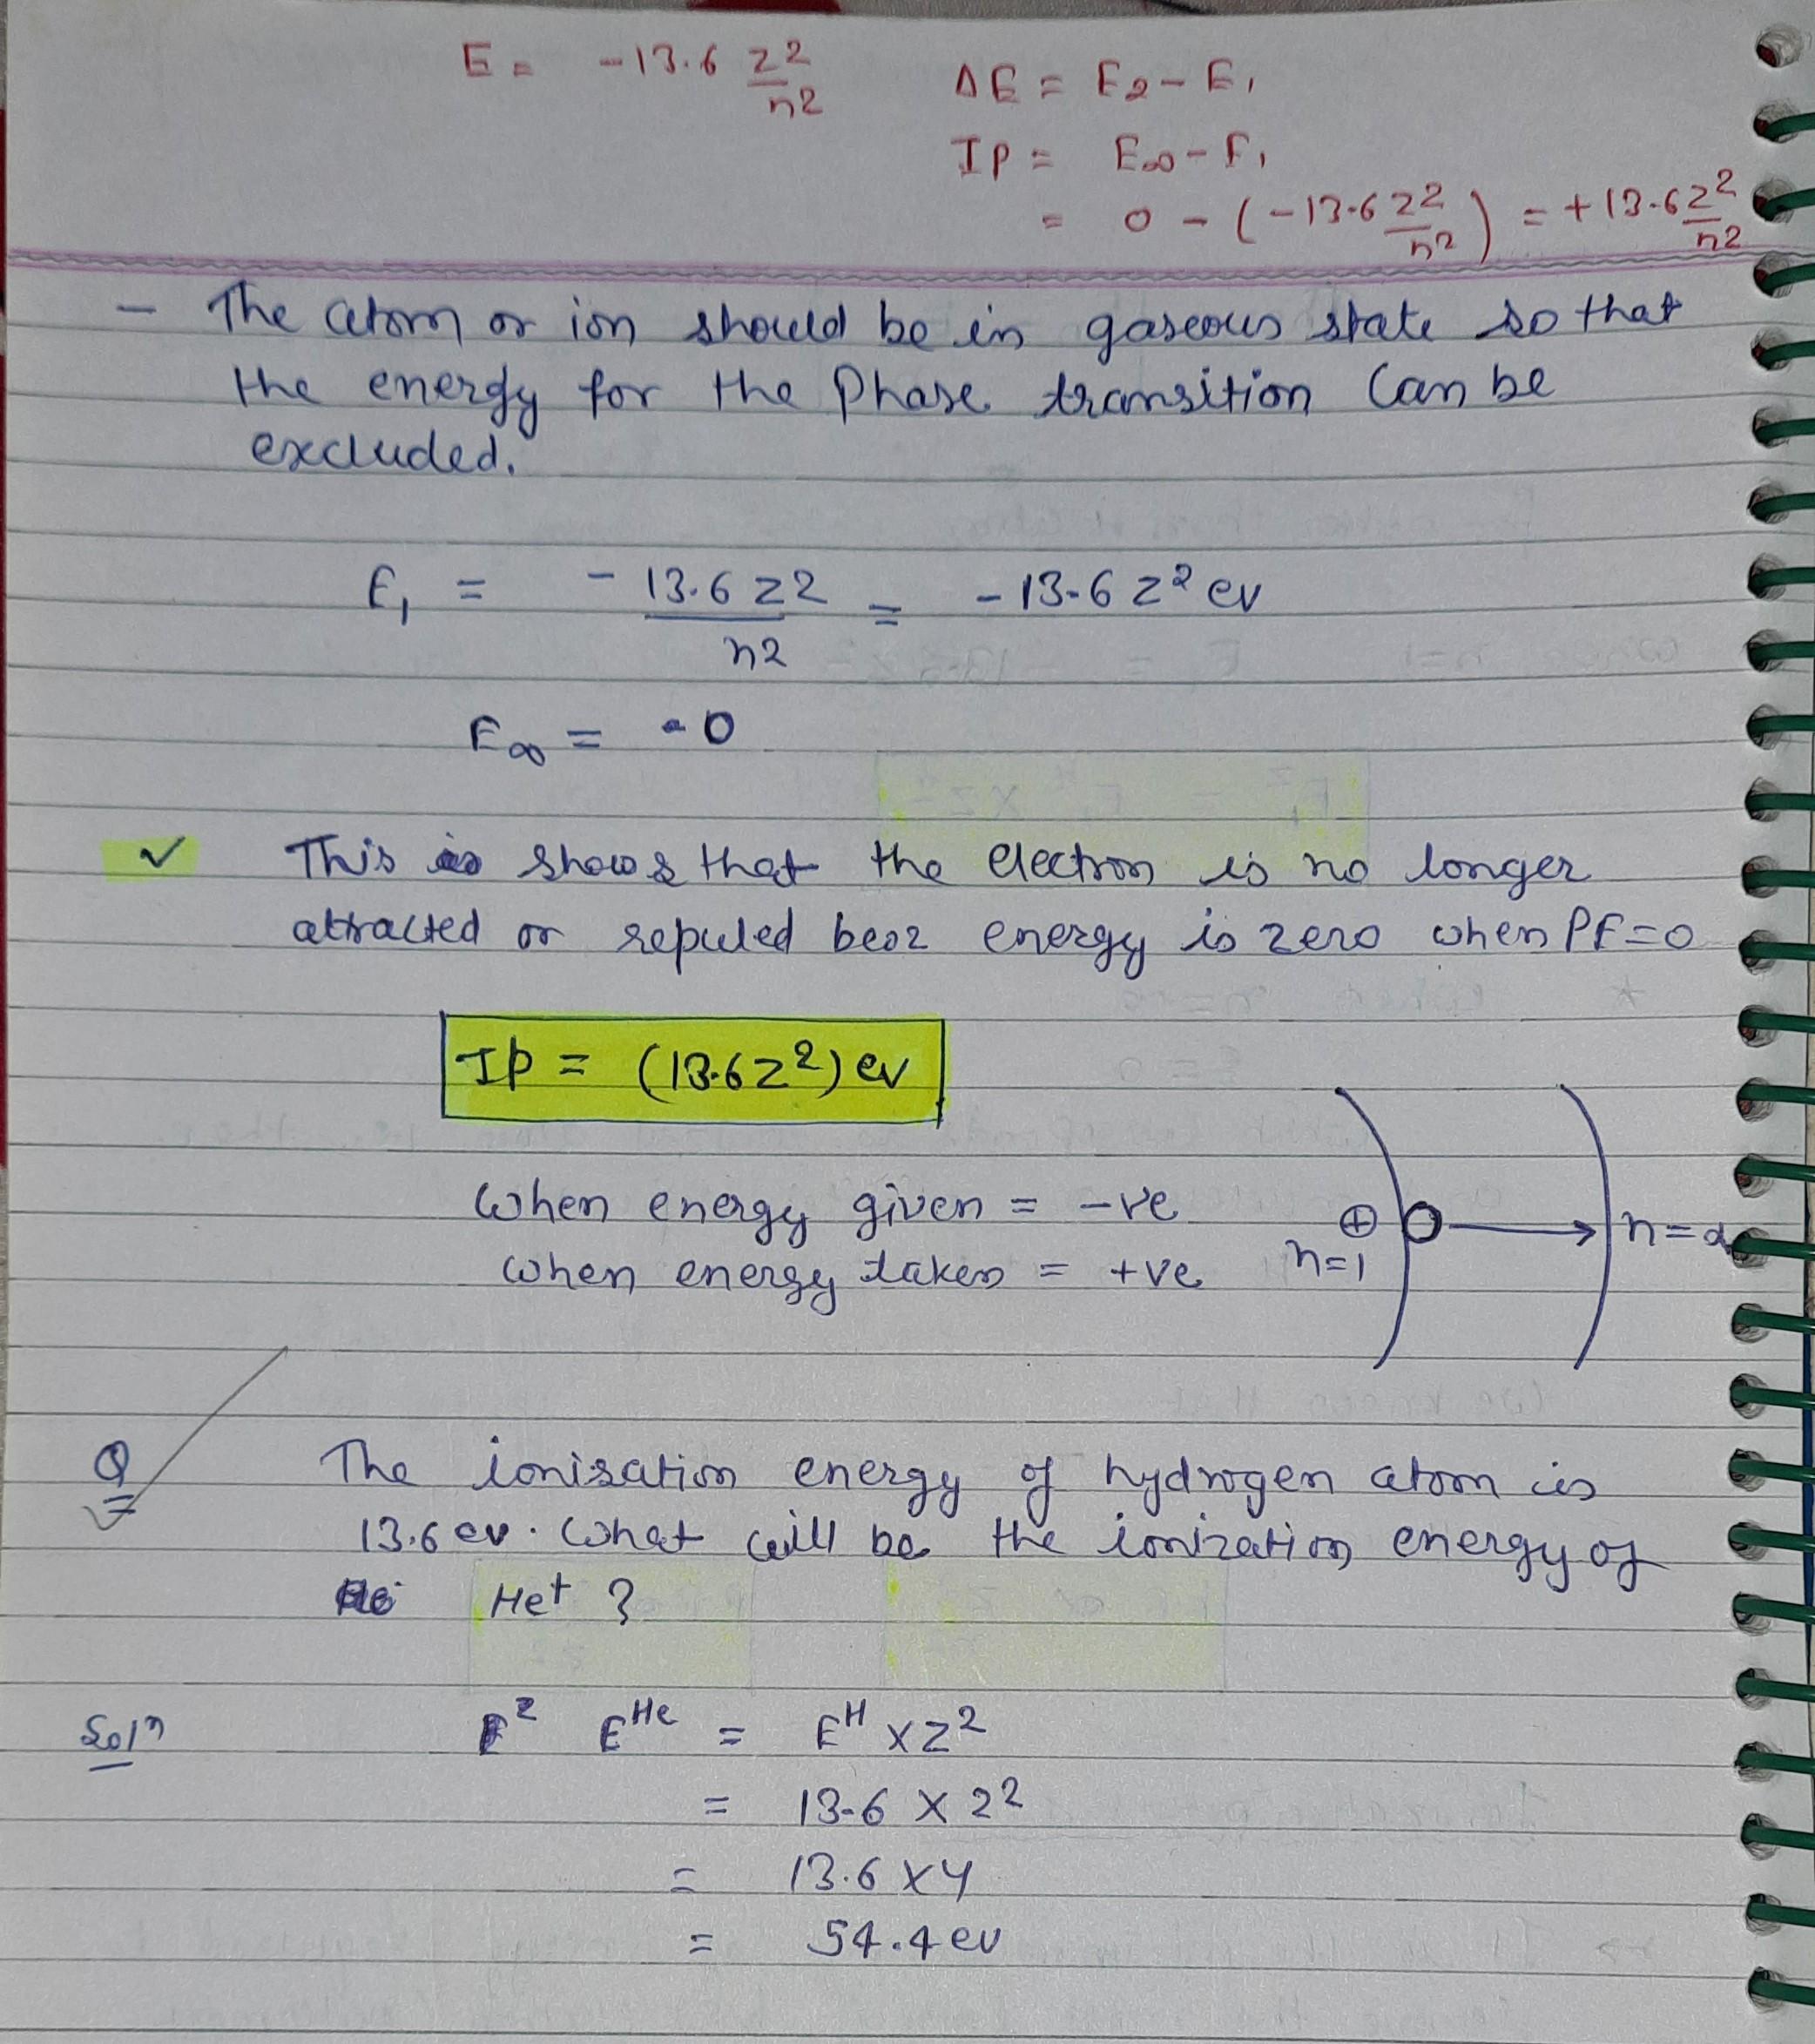 E = -13.6 z2/n2
ΔE = E2 - E1
IP = E∞ - E1
= 0 - (-13.6 z2/n2) = +13.6 z2/n2
- The atom or ion should be in gaseous state so that
the energy for the Phase transition can be
excluded.
E1 = - 13.6 z2/n2 = -13.6 z2 ev
E∞ = -0
✓ This shows that the electron is no longer
attracted or repuled becoz energy is zero when PE=0
IP = (13.6z2) ev
When energy given = -ve
When energy taken = +ve
⊕ n=1
n=∞
Q The ionisation energy of hydrogen atom is
13.6 ev. What will be the ionization energy of
He+ ?
Soln EHe = EH x z2
= 13.6 x 22
= 13.6 x 4
= 54.4 ev